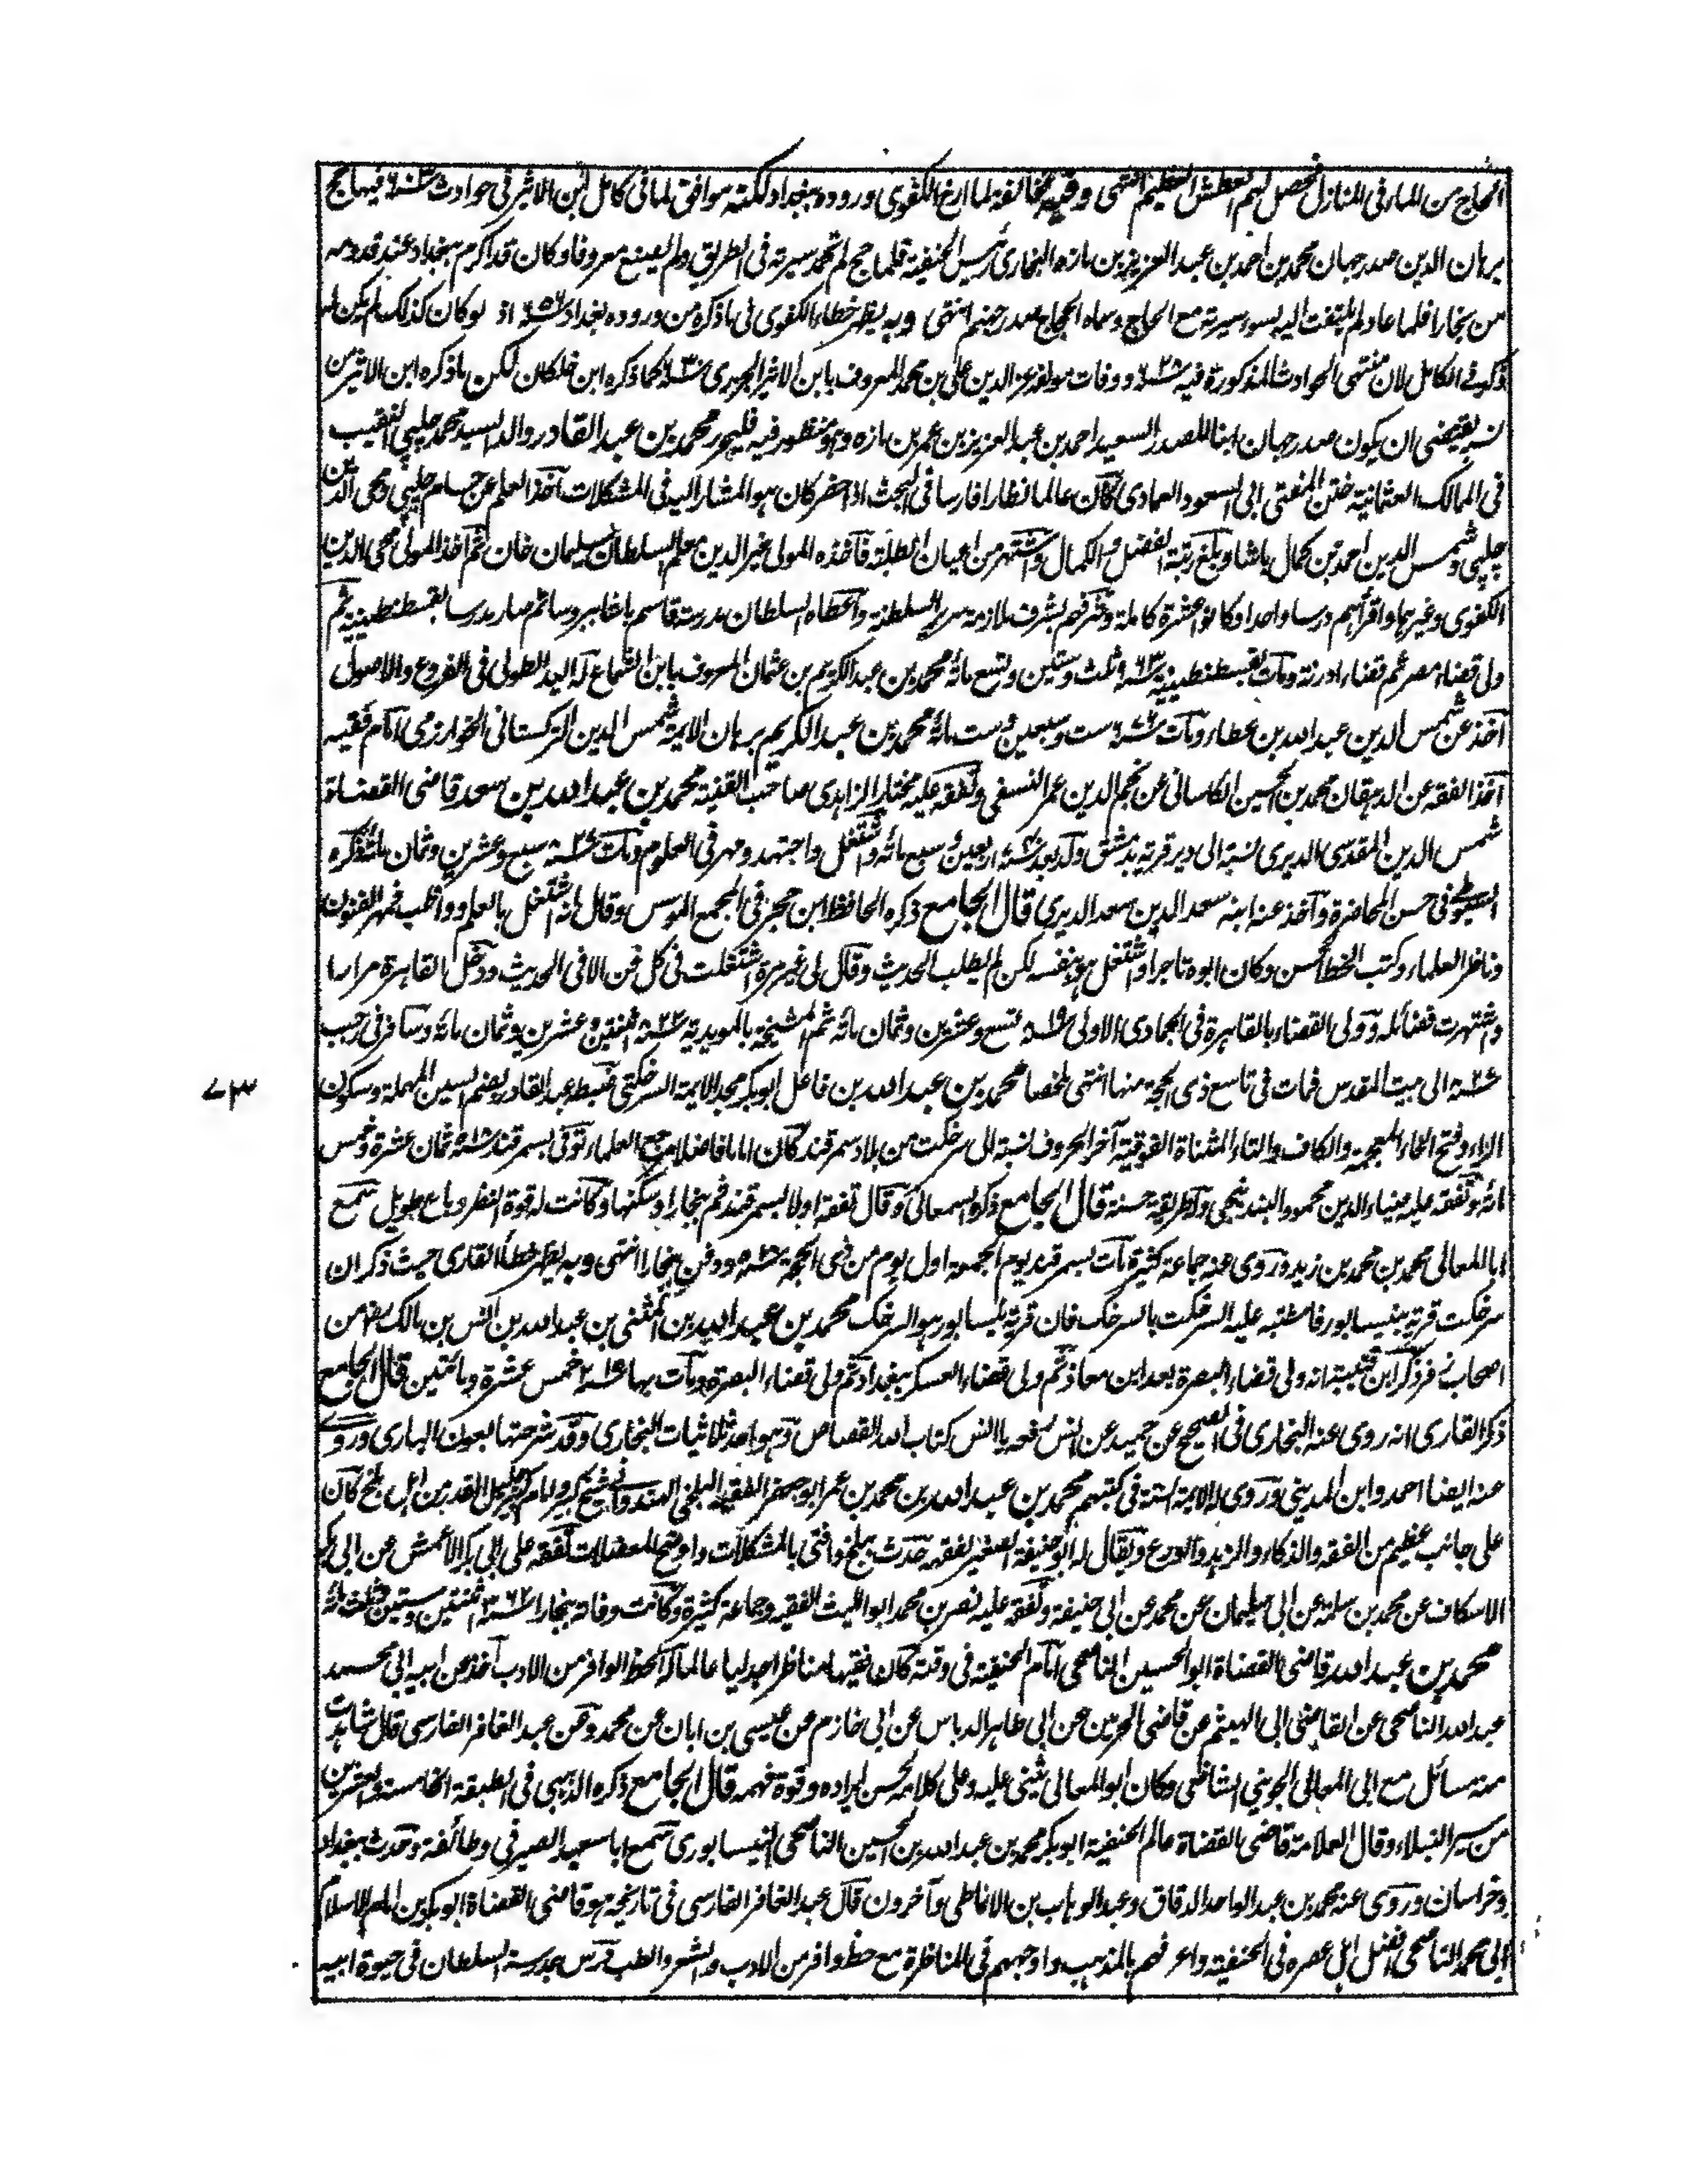 الحاج من الماء فى المنازل فحصل لهم العطش العظيم انتهى وفيه مخالفة لما ارخ الكفوى وروده ببغداد لكنه موافق لما فى كامل ابن الاثير فى حوادث سنة ٦٠٣ فيها حج
برهان الدين صدر جهان محمد بن احمد بن عبد العزيز بن مازه البخارى رئيس الحنفية فلما حج لم تحمد سيرته فى الطريق ولم يصنع معروفا وكان قد اكرم ببغداد عند قدومه
من بخارا فلما عاد لم يلتفت اليه لسوء سيرته مع الحاج وسماه الحجاج صدر جهنم انتهى وبه يظهر خطاء الكفوى فى ما ذكره من وروده بغداد اذ لو كان كذلك لم يكن له
ذكر فى الكامل لان منتهى الحوادث المذكورة فيه سنة ٦٢٨ ووفات مولفه عز الدين على بن محمد المعروف بابن الاثير الجزرى سنة ٦٣٠ كما ذكره ابن خلكان لكن ما ذكره ابن الاثير من
نسبه يقتضى ان يكون صدر جهان ابنا للصدر السعيد احمد بن عبد العزيز بن عمر بن مازه وهو منظور فيه فليحرر محمد بن عبد القادر والد السيد محمد چلپى النقيب
فى الممالك العثمانية ختن المفتى ابى السعود العمادى كان عالما نظارا فارسا فى البحث اذا حضر كان هو المشار اليه فى المشكلات اخذ العلم عن حسام چلپى ومحى الدين
چلپى وشمس الدين احمد بن كمال باشا وبلغ رتبة الفضل والكمال واشتهر من اعيان الطلبة فاخذه المولى خير الدين معلم السلطان سليمان خان ثم اخذ المولى محى الدين
الكفوى وغيرهما واقرأهم درسا واحدا وكانوا عشرة كاملة وشرفهم بشرف ملازمة سرير السلطنة واعطاه السلطان مدرسة قاسم باشا ببروسا ثم صار مدرسا بقسطنطينية ثم
ولى قضاء مصر ثم قضاء ادرنة ومات بقسطنطينية سنة ٩٦٣ ثلث وستين وتسع مائة محمد بن عبد الكريم بن عثمان المعروف بابن الشماع له اليد الطولى فى الفروع والاصول
اخذ عن شمس الدين عبد الله بن عطاء ومات سنة ٦٧٦ ست وسبعين وست مائة محمد بن عبد الكريم برهان الايمة شمس الدين التركستانى الخوارزمى امام فقيه
اخذ الفقه عن الدهقان محمد بن الحسين الكاسانى عن نجم الدين عمر النسفى وتفقه عليه مختار الزاهدى صاحب القنية محمد بن عبد الله بن سعد قاضى القضاة
شمس الدين المقدسى الديرى نسبة الى دير قرية بدمشق ولد بعد اربعين وسبع مائة واشتغل واجتهد ومهر فى العلوم ومات سنة ٨٢٧ سبع وعشرين وثمان مائة ذكره
السيوطى فى حسن المحاضرة واخذ عنه ابنه سعد الدين سعد الديرى قال الجامع ذكره الحافظ ابن حجر فى المجمع الموسس وقال انه اشتغل بالعلم وواظب فمهر الفنون
وناظر العلماء وكتب الخط الحسن وكان ابوه تاجرا واشتغل هو بنفسه لكن لم يطلب الحديث وقال لى غير مرة اشتغلت فى كل فن الا فى الحديث ودخل القاهرة مرارا
واشتهرت فضائله وولى القضاء بالقاهرة فى الجمادى الاولى سنة ٨١٩ تسع وعشرين وثمان مائة ثم المشيخة بالمويدية سنة ٨٢٢ اثنتين وعشرين وثمان مائة وسافر فى رجب
سنة ٨٢٧ الى بيت المقدس فمات فى تاسع ذى الحجة منها انتهى ملخصا محمد بن عبد الله بن فاعل ابو بكر مجد الايمة السرخكتى ضبط عبد القادر بضم السين المهملة وسكون
الراء وفتح الخاء المعجمة والكاف والتاء المثناة الفوقية آخر الحروف نسبة الى سرخكت من بلاد سمرقند كان اماما فاضلا من العلماء توفى بسمرقند سنة ٥١٨ ثمان عشرة وخمس
مائة وتفقه عليه ضياء الدين محمود البندنيجى وله طريقة حسنة قال الجامع ذكره السمعانى وقال تفقه اولا بسمرقند ثم ببخارا وسكنها وكانت له قوة النظر وباع طويل سمع
ابا المعالى محمد بن محمد بن زيد وروى عنه جماعة كثيرة مات بسمرقند يوم الجمعة اول يوم من ذى الحجة ودفن ببخارا انتهى وبه يظهر خطأ القارى حيث ذكر ان
سرخكت قرية بنيسابور فاشتبه عليه السرخكت بالسرخك فان قرية نيسابور هو السرخك محمد بن عبد الله بن المثنى بن عبد الله بن انس بن مالك رض من
اصحاب زفر ذكر ابن قتيبة انه ولى قضاء البصرة بعد ابن معاذ ثم ولى قضاء العسكر ببغداد ثم ولى قضاء البصرة ومات بها سنة ٢١٥ خمس عشرة ومائتين قال الجامع
ذكر القارى انه روى عنه البخارى فى الصحيح عن حميد عن انس رفعه يا انس كتاب الله القصاص وهو احد ثلاثيات البخارى وقد شرحتها بعون البارى وروى
عنه ايضا احمد وابن المدينى وروى له الايمة الستة فى كتبهم محمد بن عبد الله بن محمد بن عمر ابو جعفر الفقيه البلخى الهندوانى شيخ كبير وامام جليل القدر من اهل بلخ كان
على جانب عظيم من الفقه والذكاء والزهد والورع ويقال له ابو حنيفة الصغير لفقهه حدث ببلخ وافتى بالمشكلات واوضح المعضلات تفقه على ابى بكر الاعمش عن ابى بكر
الاسكاف عن محمد بن سلمة عن ابى سليمان عن محمد عن ابى حنيفة وتفقه عليه نصر بن محمد ابو الليث الفقيه وجماعة كثيرة وكانت وفاته ببخارا سنة ٣٦٢ اثنتين وستين وثلث مائة
محمد بن عبد الله قاضى القضاة ابو الحسين الناصحى امام الحنفية فى وقته كان فقيها مناظرا جدليا عالما له الحظ الوافر من الادب اخذ عن ابيه ابى محمد
عبد الله الناصحى عن القاضى ابى الهيثم عن قاضى الحرمين عن ابى طاهر الدباس عن ابى خازم عن عيسى بن ابان عن محمد وعن عبد الغافر الفارسى قال شاهدت
منه مسائل مع ابى المعالى الجوينى الشافعى وكان ابو المعالى يثنى عليه وعلى كلامه لحسن ايراده وقوة فهمه قال الجامع ذكره الذهبى فى الطبقة الخامسة والعشرين
من سير النبلاء وقال العلامة قاضى القضاة عالم الحنفية ابو بكر محمد بن عبد الله بن الحسين الناصحى النيسابورى سمع ابا سعيد الصيرفى وطائفة وحدث ببغداد
وخراسان وروى عنه محمد بن عبد الواحد الدقاق وعبد الوهاب بن الانماطى وآخرون قال عبد الغافر الفارسى فى تاريخه هو قاضى القضاة ابو بكر بن امام الاسلام
ابى محمد الناصحى افضل اهل عصره فى الحنفية واعرفهم بالمذهب واوجههم فى المناظرة مع حظ وافر من الادب والشعر والطب درس بمدرسة السلطان فى حيوة ابيه
٧٣